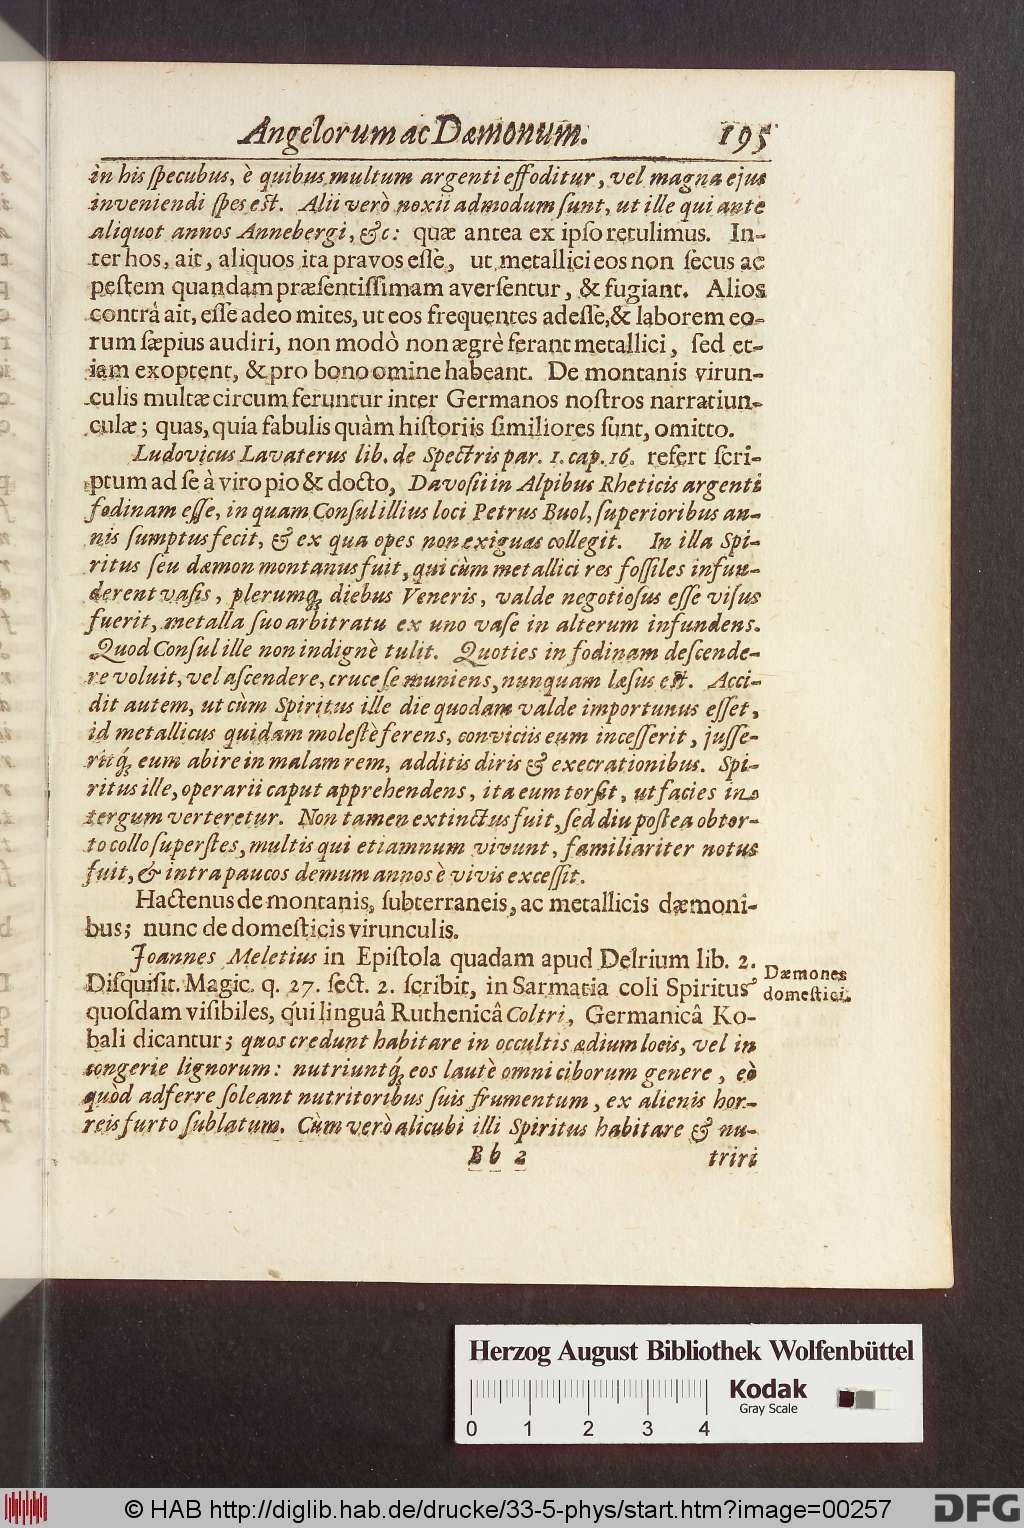 Angelorum ac Dæmonum. 195
in his ſpecubus, è quibus multum argenti effoditur, vel magna ejus
inveniendi ſpes eſt. Alii verò noxii admodum ſunt, ut ille qui ante
aliquot annos Annebergi, &c: quæ antea ex ipſo retulimus. In-
ter hos, ait, aliquos ita pravos eſſe, ut metallici eos non ſecus ac
peſtem quandam præſentiſſimam averſentur, & fugiant. Alios
contrá ait, eſſe adeo mites, ut eos frequentes adeſſe, & laborem eo-
rum ſæpius audiri, non modò non ægrè ferant metallici, ſed et-
iam exoptent, & pro bono omine habeant. De montanis virun-
culis multæ circumferuntur inter Germanos noſtros narratiun-
culæ; quas, quia fabulis quàm hiſtoriis ſimiliores ſunt, omitto.
Ludovicus Lavaterus lib. de Spectris par. 1. cap. 16. refert ſcri-
ptum ad ſe à viro pio & docto, Davoſii in Alpibus Rheticis argenti
fodinam eſſe, in quam Conſul illius loci Petrus Buol, ſuperioribus an-
nis ſumptus fecit, & ex qua opes non exiguas collegit. In illa Spi-
ritus ſeu dæmon montanus fuit, qui cùm metallici res foſſiles infun-
derent vaſis, plerumq; diebus Veneris, valde negotioſus eſſe viſus
fuerit, metalla ſuo arbitratu ex uno vaſe in alterum infundens.
Quod Conſul ille non indignè tulit. Quoties in fodinam deſcende-
re voluit, vel aſcendere, cruce ſe muniens, nunquam læſus eſt. Acci-
dit autem, ut cùm Spiritus ille die quodam valde importunus eſſet,
id metallicus quidam moleſtè ferens, conviciis eum inceſſerit, juſſe-
ritq́; eum abire in malam rem, additis diris & execrationibus. Spi-
ritus ille, operarii caput apprehendens, ita eum torſit, ut facies in
tergum verteretur. Non tamen extinctus fuit, ſed diu poſtea obtor-
to collo ſuperſtes, multis qui etiamnum vivunt, familiariter notus
fuit, & intra paucos demum annos è vivis exceſſit.
Hactenus de montanis, ſubterraneis, ac metallicis dæmoni-
bus; nunc de domeſticis virunculis.
Joannes Meletius in Epiſtola quadam apud Delrium lib. 2.
Diſquiſit. Magic. q. 27. ſect. 2. ſcribit, in Sarmatia coli Spiritus
quoſdam viſibiles, qui linguâ Ruthenicâ Coltri, Germanicâ Ko-
bali dicantur; quos credunt habitare in occultis ædium locis, vel in
congerie lignorum: nutriuntq́; eos lautè omni ciborum genere, eò
quòd adferre ſoleant nutritoribus ſuis frumentum, ex alienis hor-
reis furto ſublatum. Cùm verò alicubi illi Spiritus habitare & nu-
Bb 2 triri
Dæmones
domeſtici.
Herzog August Bibliothek Wolfenbüttel
Kodak
Gray Scale
0 1 2 3 4
© HAB http://diglib.hab.de/drucke/33-5-phys/start.htm?image=00257
DFG